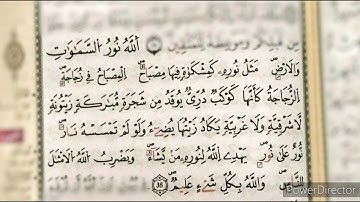 اللَّهُ نُورُ السَّمَاوَاتِ
وَالْأَرْضِ مَثَلُ نُورِهِ كَمِشْكَاةٍ فِيهَا مِصْبَاحٌ الْمِصْبَاحُ فِي زُجَاجَةٍ
الزُّجَاجَةُ كَأَنَّهَا كَوْكَبٌ دُرِّيٌّ يُوقَدُ مِن شَجَرَةٍ مُّبَارَكَةٍ زَيْتُونَةٍ
لَّا شَرْقِيَّةٍ وَلَا غَرْبِيَّةٍ يَكَادُ زَيْتُهَا يُضِيءُ وَلَوْ لَمْ تَمْسَسْهُ نَارٌ
نُّورٌ عَلَىٰ نُورٍ يَهْدِي اللَّهُ لِنُورِهِ مَن يَشَاءُ وَيَضْرِبُ اللَّهُ الْأَمْثَالَ
لِلنَّاسِ وَاللَّهُ بِكُلِّ شَيْءٍ عَلِيمٌ ٣٥
PowerDirector